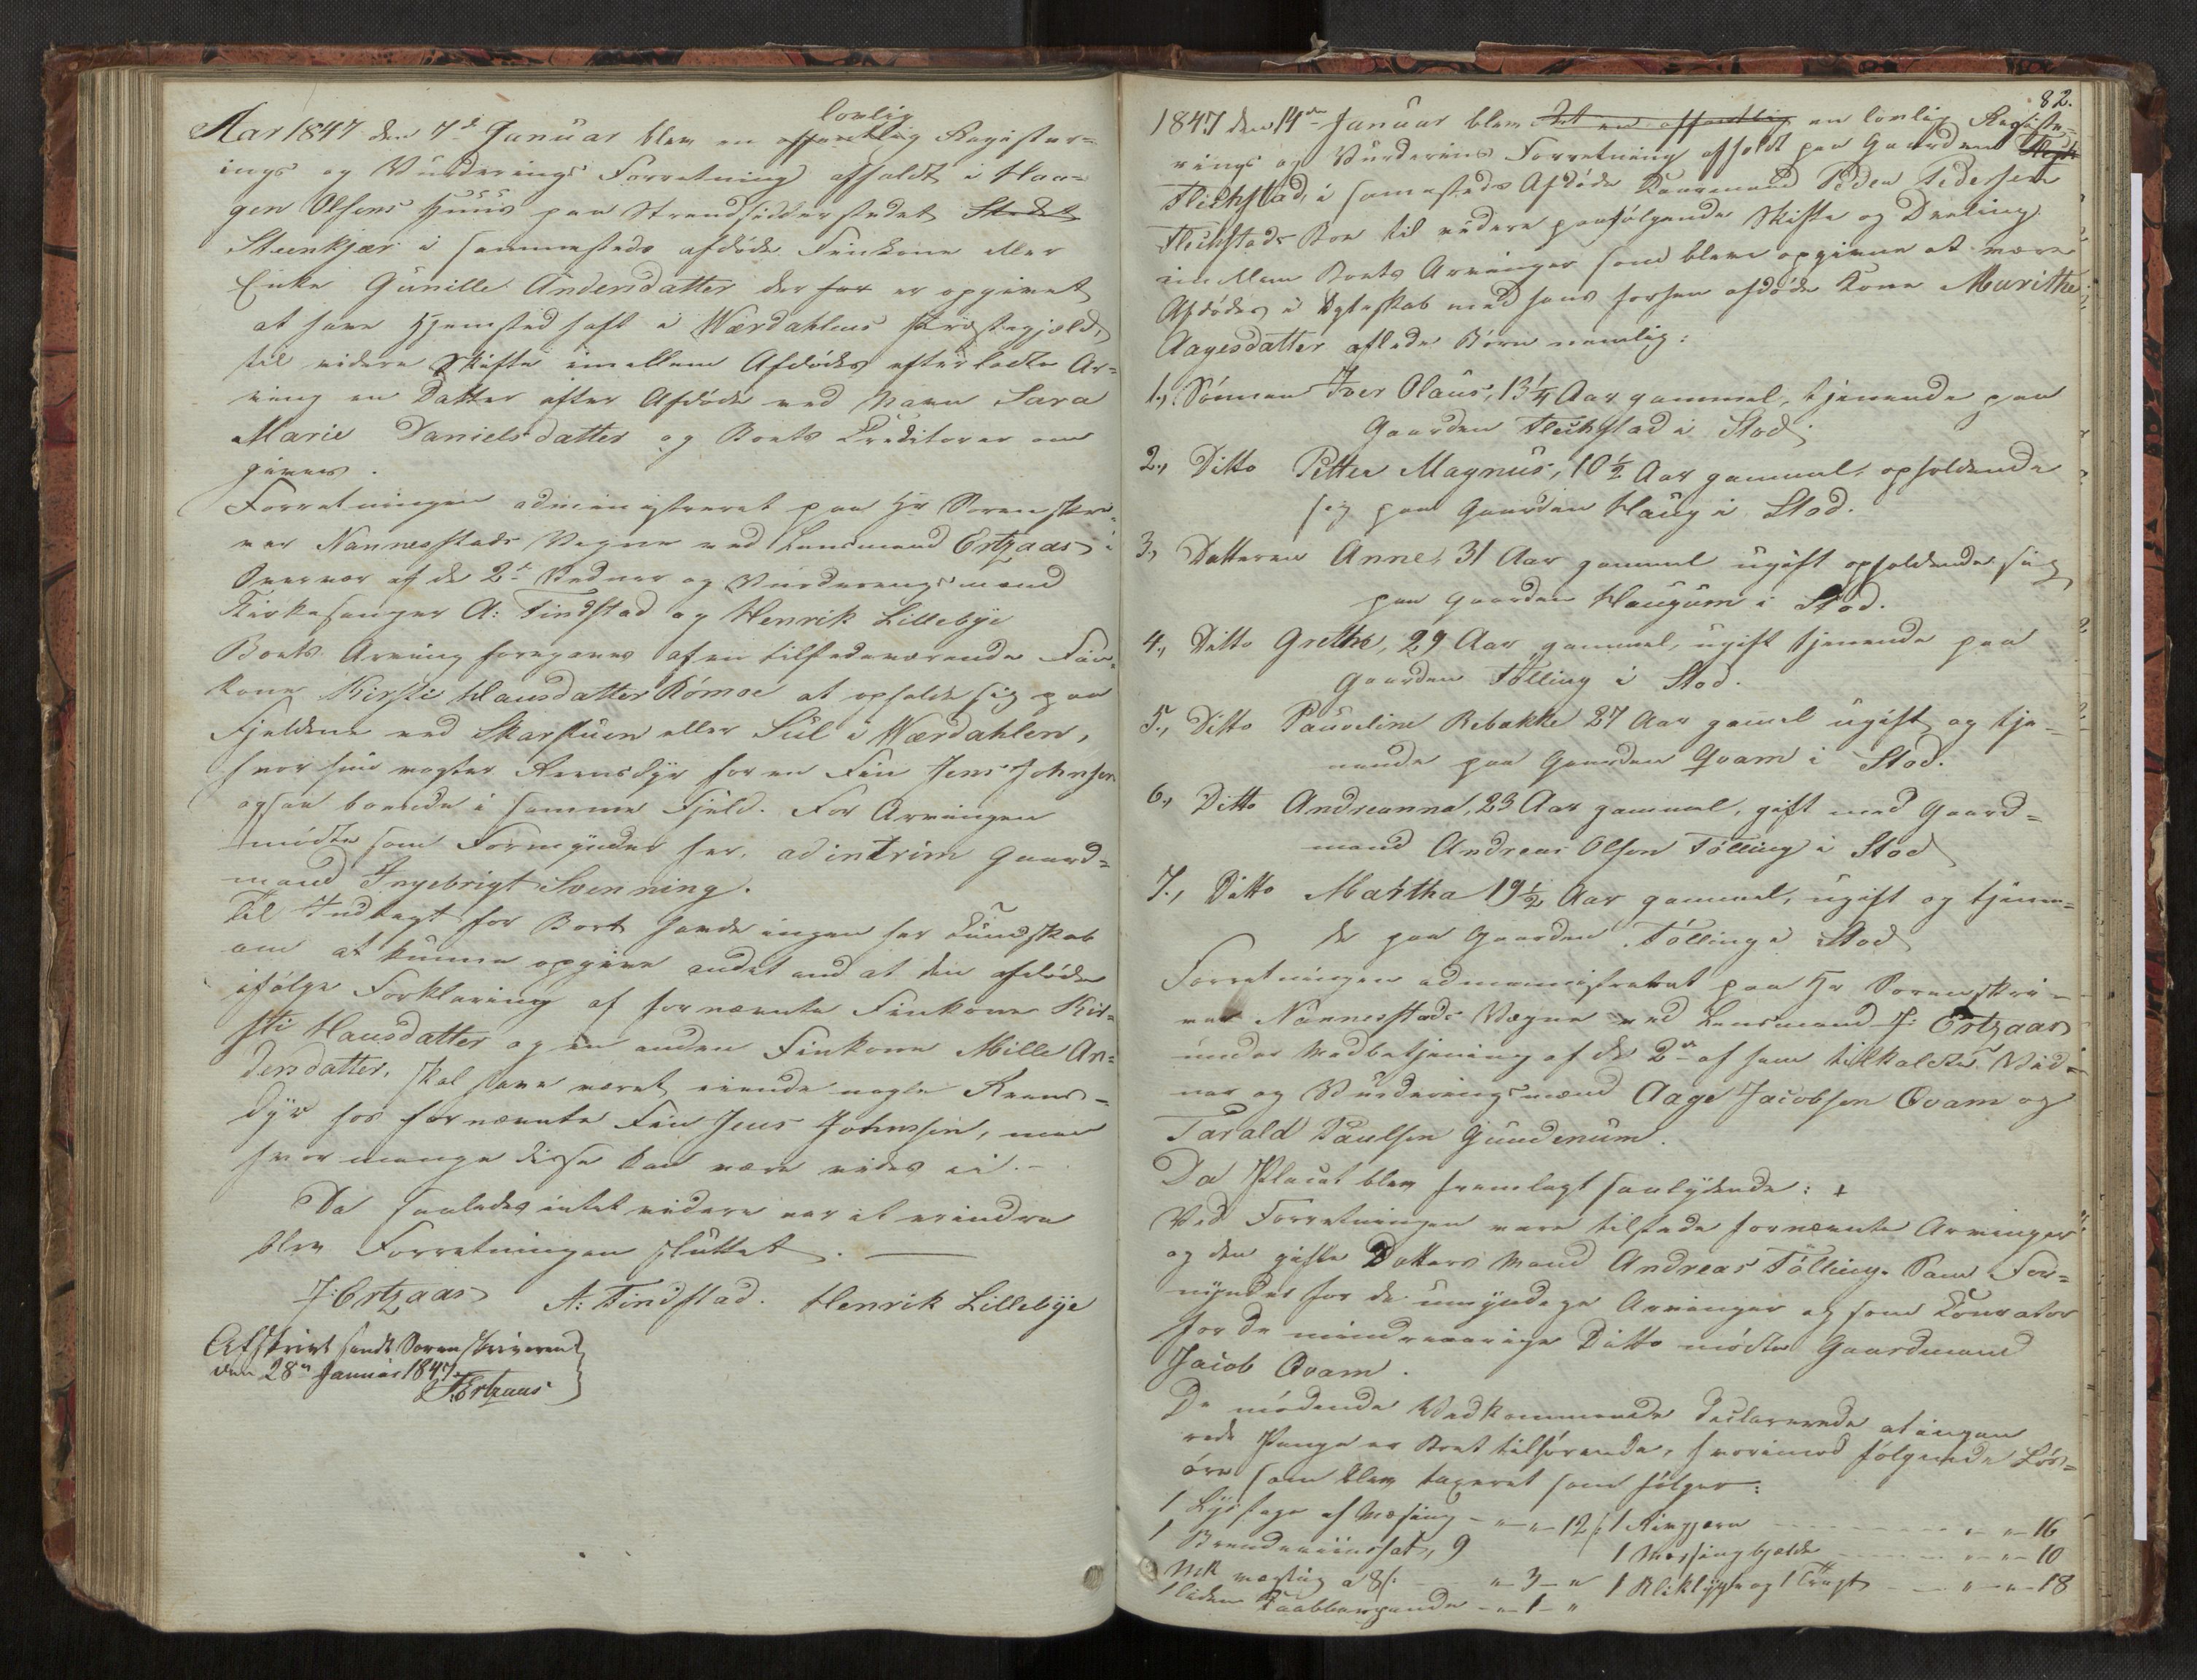 Aar 1847 den 7de Januar blev en offentlig lovlig Registrer=
ings og Vurderings Forretning afholdt i Haa=
gen Olsens Huus paa Strandsidderstedet Stedet
Steenkjær i sammesteds afdøde Finkone eller
Enke Gunille Andersdatter der har er opgivet
at have Hjemsted haft i Wærdahlens Præstegjæld,
til videre Skifte imellem Afdødes efterladte Ar=
ving en Datter efter Afdøde ved Navn Sara
Marie Danielsdatter og Boets Creditorer om
gives.
Forretningen administreret paa Hr Sorenskri=
ver Nannestads Vegne ved Lensmand Ertzaas i
Overvær af de 2de Vidner og Vurderingsmænd
Kirkesanger A: Findstad og Henrik Lillebye
Boets Arving foregaves af en tilstedeværende Fin=
kone Kirsti Hansdatter Rømoe at opholde sig paa
Fjeldene ved Skarstuen eller Suul i Wærdahlen,
hvor hun vogter Reensdyr for en Fin Jens Johnsen
ogsaa boende i samme Fjeld. For Arvingen
mødte som Formynder her, ad intrim Gaard=
mand Ingebrigt Svenning.
Til Indtægt for Boet havde ingen her Kundskab
om at kunne opgive andet end at den afdøde
ifølge Forklaring af fornævnte Finkone Kir=
sti Hansdatter og en anden Finkone Mille An=
dersdatter, skal have været eiende nogle Reens=
dyr hos fornævnte Fin Jens Johnsen, men
hvormange disse kan være vides ei. -
Da saaledes intet videre var at erindre
blev Forretningen sluttet. —
J: Ertzaas A: Findstad. Henrik Lillebye
Afskrivt sendt Sorenskriveren
den 28de Januar 1847
J. Ertzaas
82.
1847 den 14de Januar blev det en offentlig en lovlig Registre=
rings og Vurderins Forretning afholdt paa Gaarden
Flekstad, i samesteds Afdøde Kaarmand Peder Pedersen
Flekstads Boe til videre paafølgende Skifte og Deeling
imellem Boets Arvinger som bleve opgivne at være
Afdødes i Egteskab med hans forhen afdøde Kone Marithe
Aagesdatter aflede Børn nemlig:
1., Sønnen Iver Olaus, 13¼ Aar gammel, tjenende paa
Gaarden Flekstad i Stod,
2., Ditto Petter Magnus, 10½ Aar gammel, opholdende
sig paa Gaarden Haug i Stod.
3., Datteren Anne, 31 Aar gammel ugift opholdende sig
paa Gaarden Haugum i Stod.
4., Ditto Grethe, 29 Aar gammel, ugift tjenende paa
Gaarden Følling i Stod.
5., Ditto Pauvline Rebakke 27 Aar gamel ugift og tje=
nende paa Gaarden Qvam i Stod.
6., Ditto Andreanna, 23 Aar gammel, gift med Gaard=
mand Andreas Olsen Følling i Stod
7., Ditto Martha 19½ Aar gammel, ugift og tjenen=
de paa Gaarden Følling i Stod
Forretningen admenistreret paa Hr Sorenskri=
ver Nannestads Vegne ved Lensmand J: Ertzaas
under Medbetjening af de 2de af ham tilkaldte Vid=
ner og Vurderingsmænd Aage Jacobsen Qvam og
Tarald Paulsen Gundenum.
Da Placat blev fremlagt saalydende: +
Ved Forretningen vare tilstede fornævnte Arvinger
og den gifte Datters Mand Andreas Følling. Som For=
mynder for de umyndige Arvinger og som Courator
for de mindreaarige Ditto mødte Gaardmand
Jacob Qvam.
De mødende Vedkommende declarerede at ingen
rede Penge er Boet tilhørende, hvorimod følgende Løs=
øre som blev taxeret som følger:
1 Lysesage af Mesing - " - " - 12 ß 1 Rivejern - " - " - 16
1 Brendeviinsfad, 9 1 Messingbjelde - " - " - 10
Mrk vægtig a 8 ß - " - 3 - " 1 Bliklygte og 1 Tragt - " - " - 18
1 liden Kaabberpande - " - 1 - "